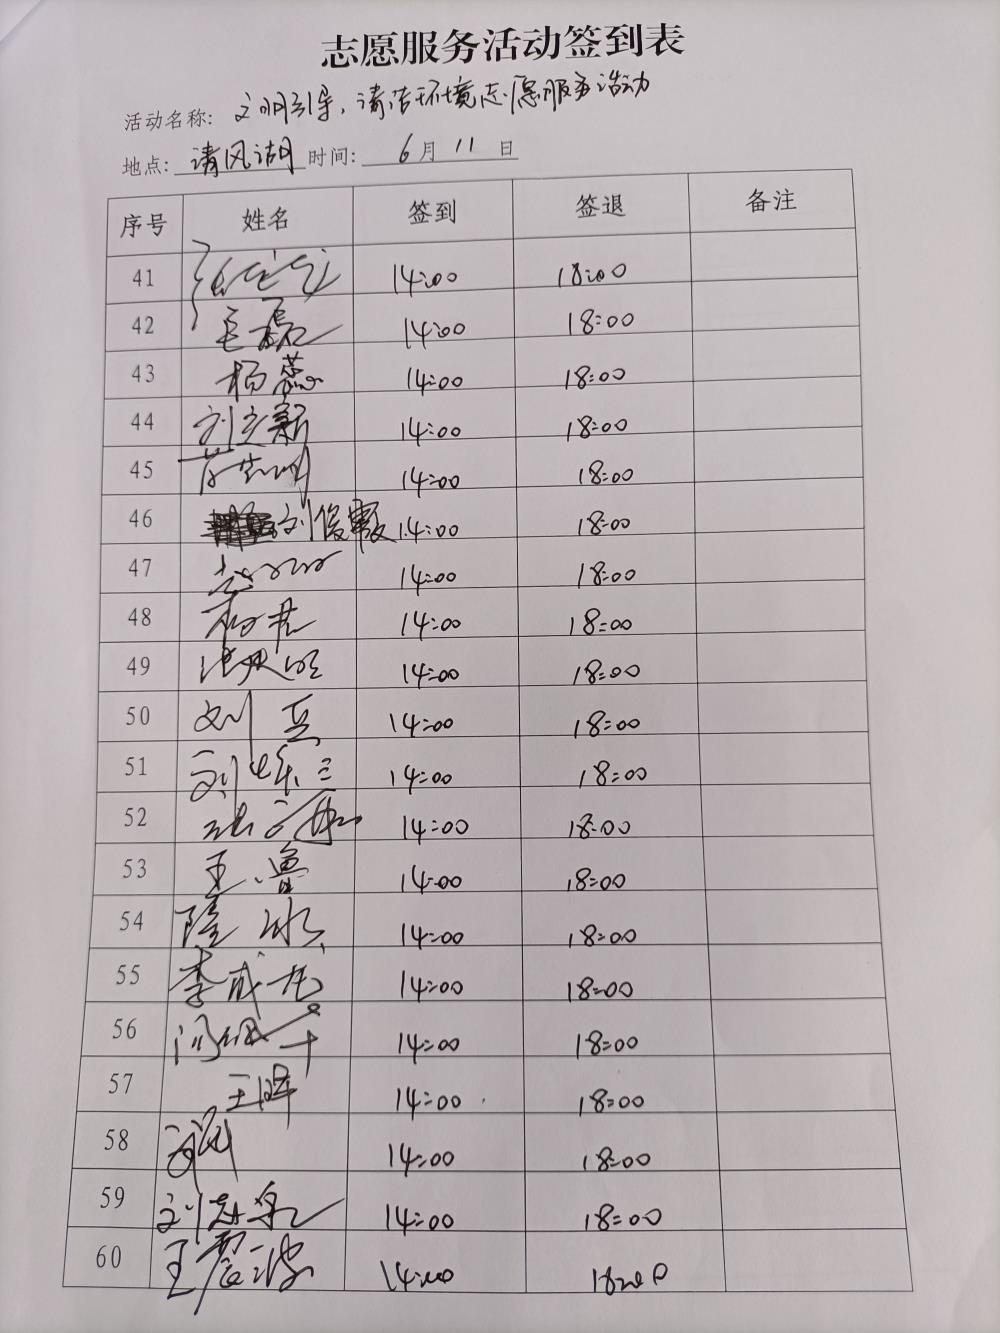 志愿服务活动签到表
活动名称: 文明引导,清洁环境志愿服务活动
地点: 清风湖 时间: 6月11日
序号 姓名 签到 签退 备注
41 14:00 18:00
42 毛磊 14:00 18:00
43 杨蕊 14:00 18:00
44 刘立新 14:00 18:00
45 14:00 18:00
46 刘俊霞 14:00 18:00
47 14:00 18:00
48 14:00 18:00
49 14:00 18:00
50 刘兵 14:00 18:00
51 刘 14:00 18:00
52 14:00 18:00
53 王鲁 14:00 18:00
54 隆冰 14:00 18:00
55 李成龙 14:00 18:00
56 14:00 18:00
57 王晖 14:00 18:00
58 14:00 18:00
59 刘志泉 14:00 18:00
60 王震波 14:00 18:00